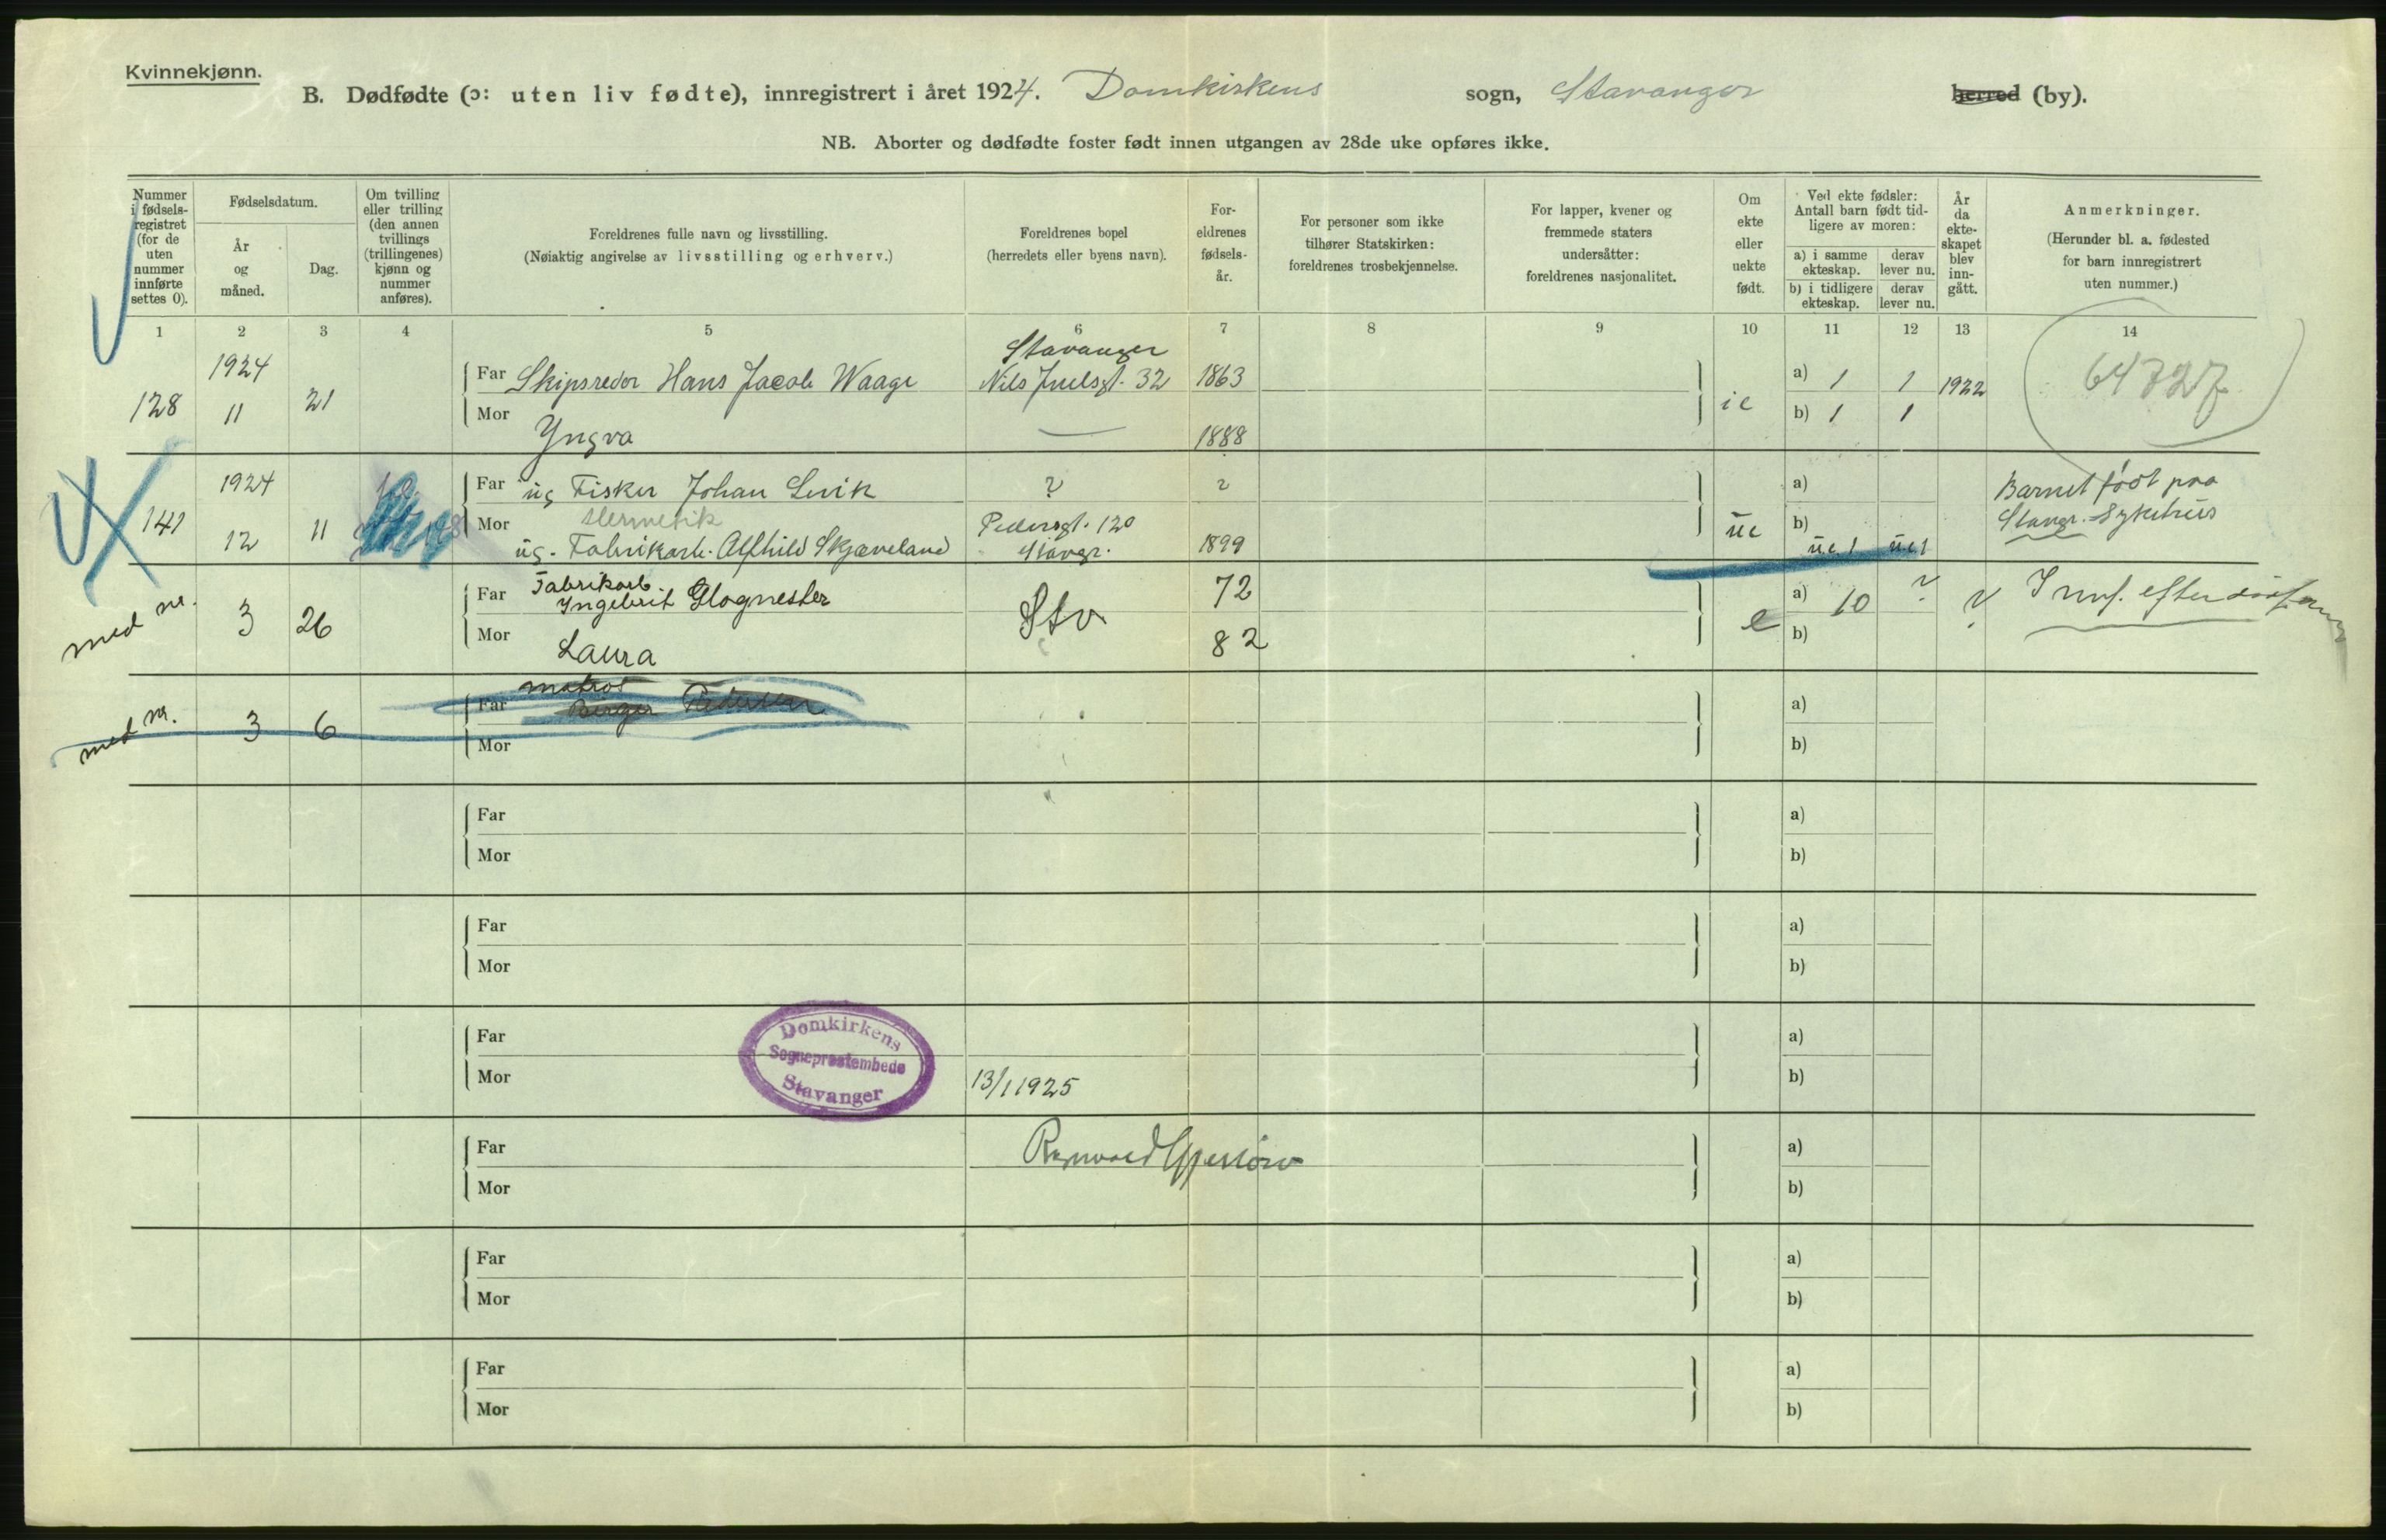 Kvinnekjønn.
B. Dødfødte (ɔ: uten liv fødte), innregistrert i året 1924. Domkirkens sogn, Stavanger herred (by).
NB. Aborter og dødfødte foster født innen utgangen av 28de uke opføres ikke.
Nummer i fødsels-registret (for de uten nummer innførte settes 0).
Fødselsdatum.
År og måned.
Dag.
Om tvilling eller trilling (den annen tvillings (trillingenes) kjønn og nummer anføres).
Foreldrenes fulle navn og livsstilling.
(Nøiaktig angivelse av livsstilling og erhverv.)
Foreldrenes bopel
(herredets eller byens navn).
For-eldrenes fødsels-år.
For personer som ikke tilhører Statskirken: foreldrenes trosbekjennelse.
For lapper, kvener og fremmede staters undersåtter: foreldrenes nasjonalitet.
Om ekte eller uekte født.
Ved ekte fødsler: Antall barn født tid-ligere av moren:
a) i samme ekteskap.
derav lever nu.
b) i tidligere ekteskap.
derav lever nu.
År da ekte-skapet blev inn-gått.
Anmerkninger.
(Herunder bl. a. fødested for barn innregistrert uten nummer.)
1 2 3 4 5 6 7 8 9 10 11 12 13 14
Stavanger
128 1924 11 21 Far Skipsredor Hans Jacob Waage Nils Juelsgt. 32 1863 ie a) 1 1 1922 64327
Mor Yngva — 1888 b) 1 1
141 1924 12 11 Far ug Fisker Johan ? ? ue a) Barnet født paa
Mor Hermetik Pedersgt. 120 b) Stavgr. Sykehus
ug. Fabrikarb. Alfhild Skjæveland Stavgr. 1899 u.e. 1 u.e. 1
med nr. 3 26 Far Fabrikarb. Ingebrit Glognester Stv 72 e a) 10 ? ? Innf. efter
Mor Laura 82 b)
med nr. 3 6 Far matros Birger Pedersen a)
Mor b)
Far a)
Mor b)
Far a)
Mor b)
Domkirkens
Sogneprestembede
Stavanger
Far a)
Mor 13/1 1925 b)
Far a)
Mor b)
Far a)
Mor b)
Far a)
Mor b)